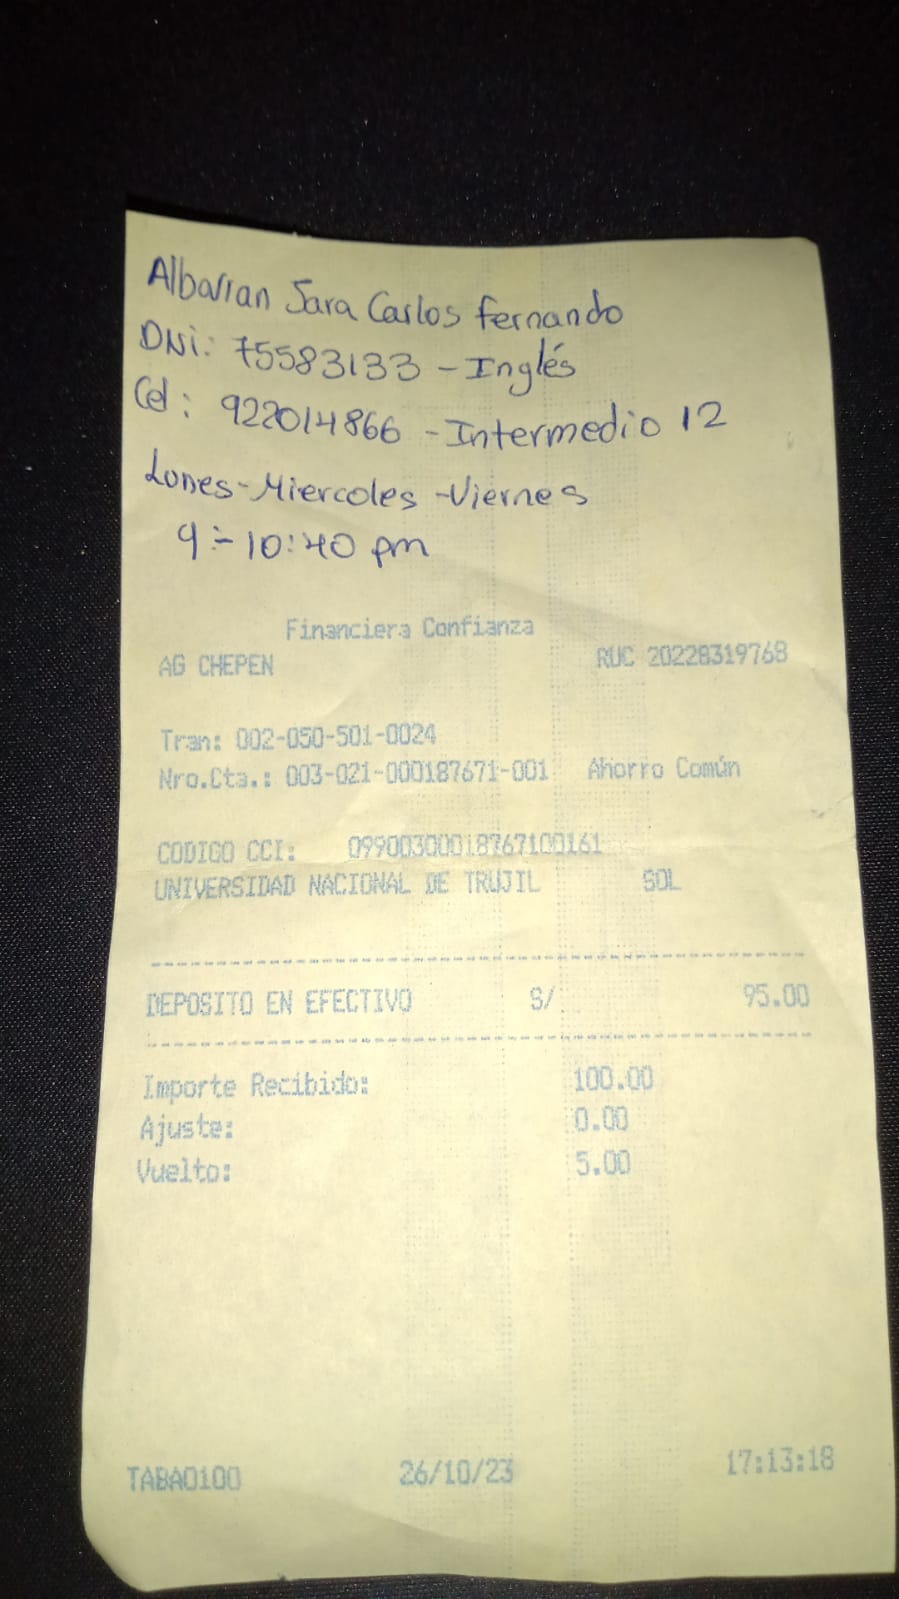 Albarran Jara Carlos Fernando
DNi: 75583133 - Inglés
Cel: 922014866 - Intermedio 12
Lunes - Miercoles - Viernes
9:- 10:40 pm
Financiera Confianza
AG CHEPEN RUC 20228319768
Tran: 002-050-501-0024
Nro.Cta.: 003-021-000187671-001 Ahorro Común
CODIGO CCI: 09900300018767100161
UNIVERSIDAD NACIONAL DE TRUJIL SOL
DEPOSITO EN EFECTIVO S/ 95.00
Importe Recibido: 100.00
Ajuste: 0.00
Vuelto: 5.00
TABAO100 26/10/23 17:13:18